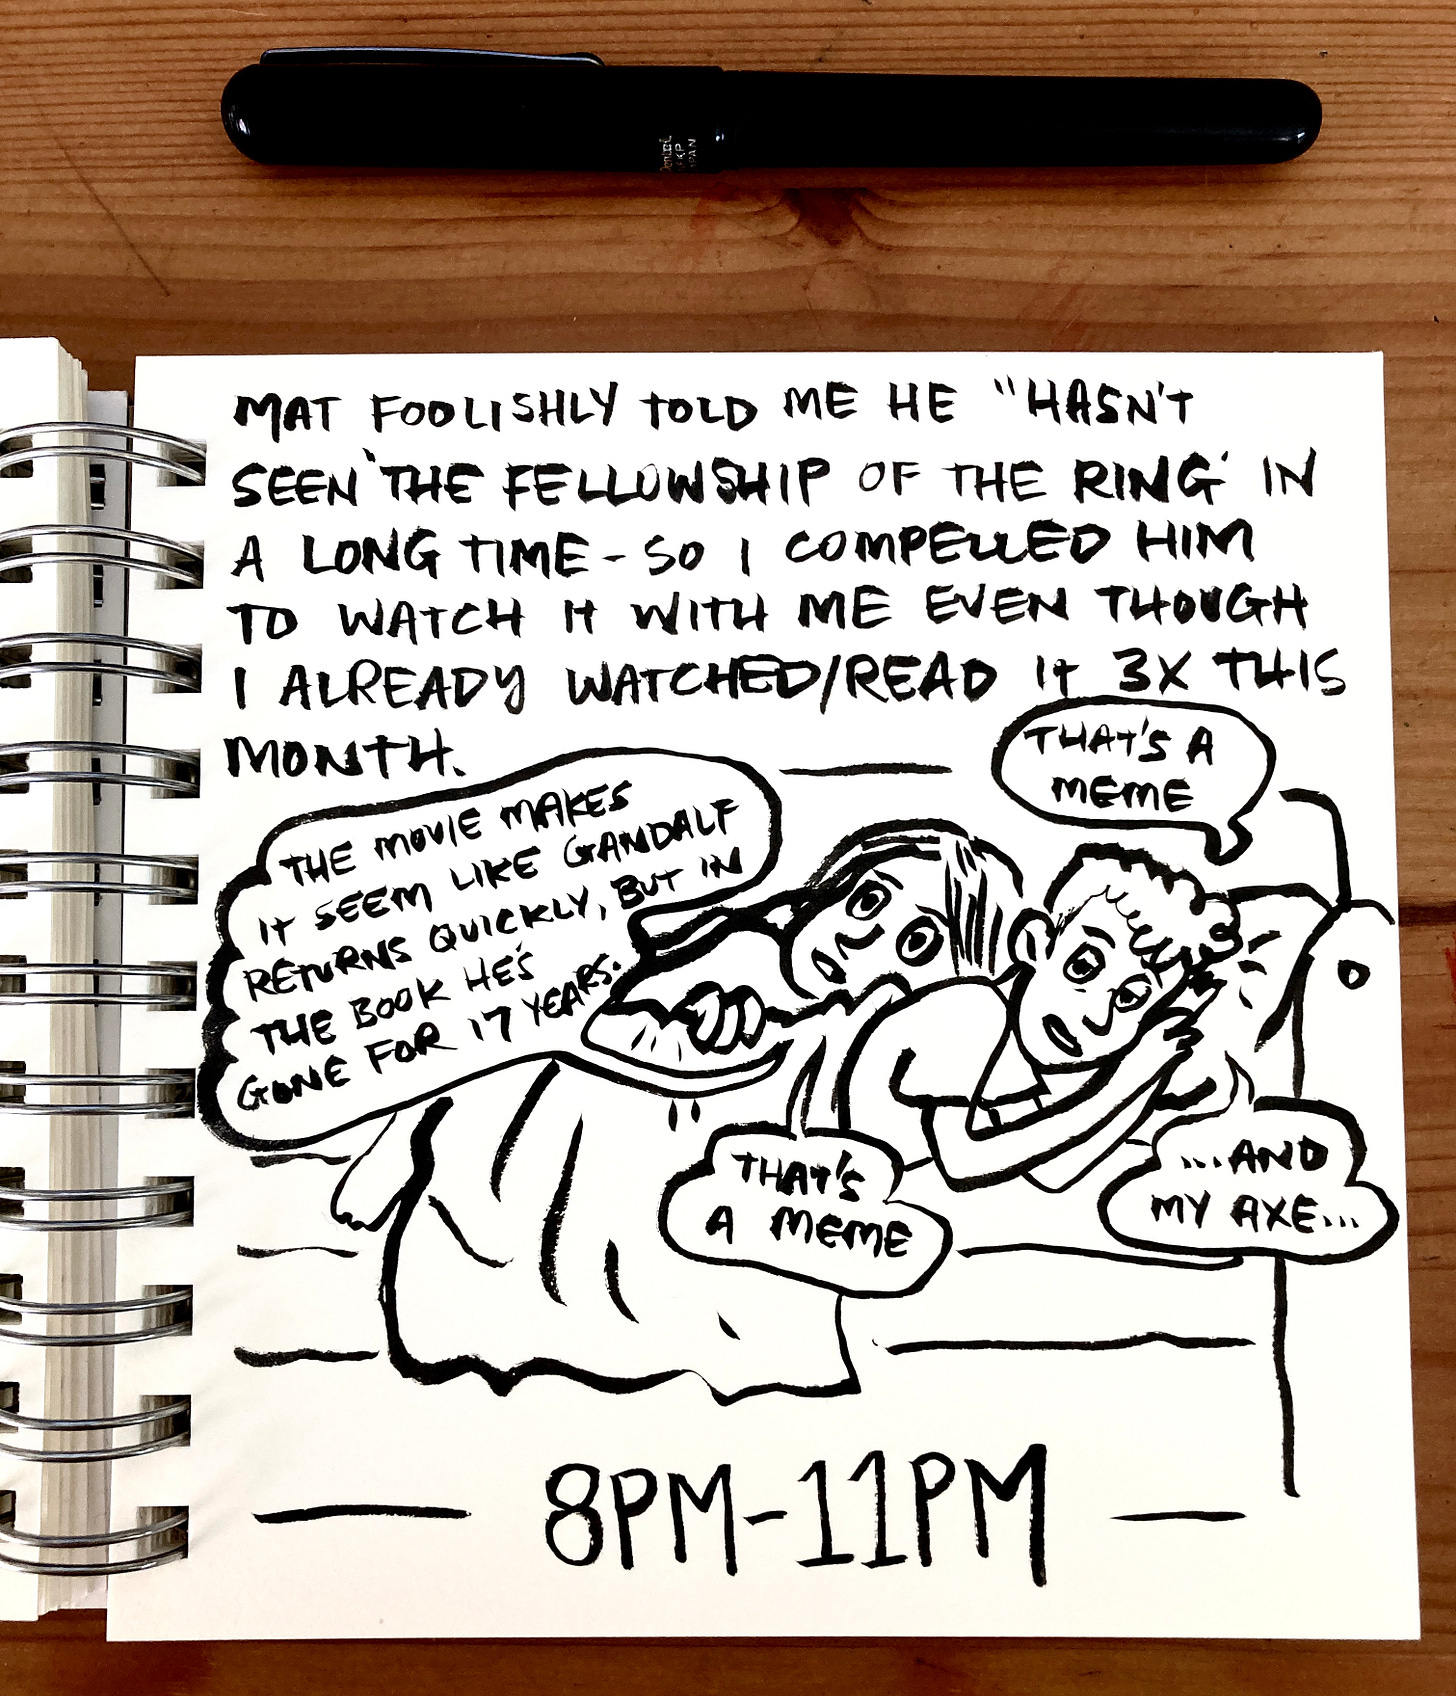 Pentel
JAPAN
MAT FOOLISHLY TOLD ME HE "HASN'T
SEEN 'THE FELLOWSHIP OF THE RING' IN
A LONG TIME - SO I COMPELLED HIM
TO WATCH IT WITH ME EVEN THOUGH
I ALREADY WATCHED/READ IT 3X THIS
MONTH.
THAT'S A
MEME
THE MOVIE MAKES
IT SEEM LIKE GANDALF
RETURNS QUICKLY, BUT IN
THE BOOK HE'S
GONE FOR 17 YEARS.
THAT'S
A MEME
...AND
MY AXE...
8PM-11PM